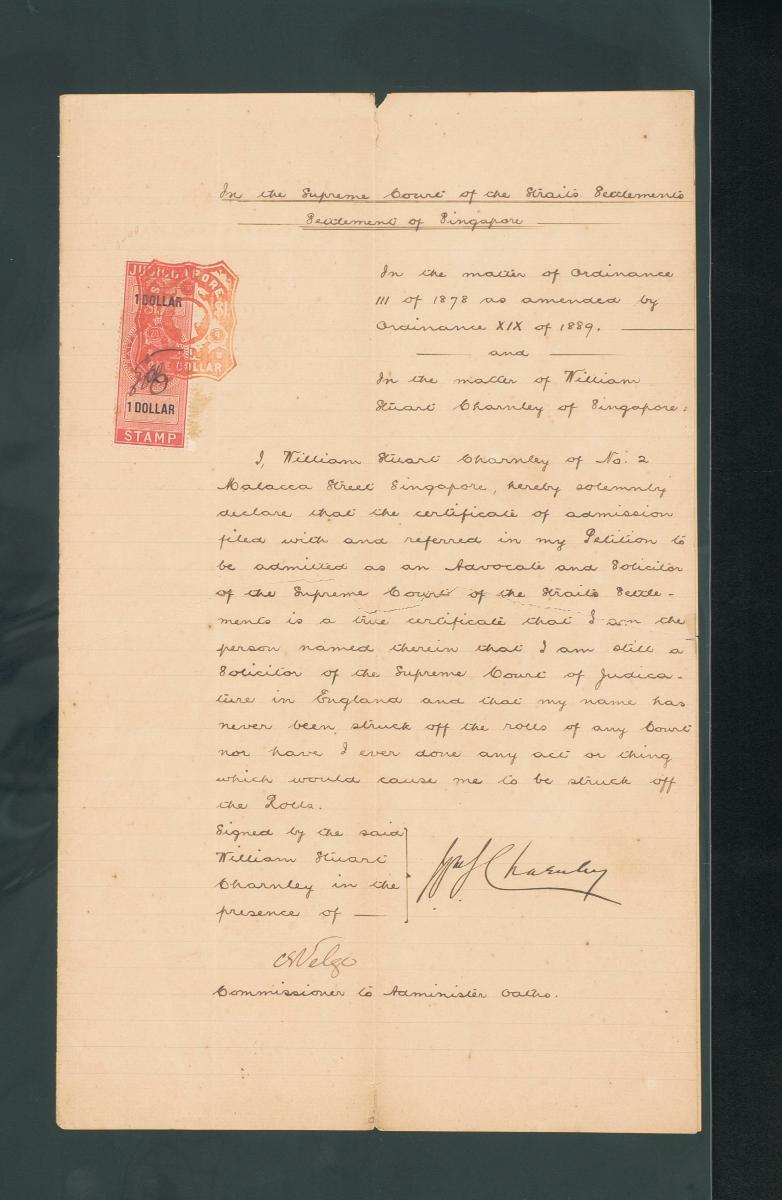 In the Supreme Court of the Straits Settlements
Settlement of Singapore
JUDICIAL
SINGAPORE
1 DOLLAR
ONE DOLLAR
1 DOLLAR
STAMP
In the matter of Ordinance
III of 1878 as amended by
Ordinance XIX of 1889.
and
In the matter of William
Stuart Charnley of Singapore:
I, William Stuart Charnley of No. 2
Malacca Street Singapore, hereby solemnly
declare that the certificate of admission
filed with and referred in my Petition to
be admitted as an Advocate and Solicitor
of the Supreme Court of the Straits Settle-
ments is a true certificate that I am the
person named therein that I am still a
Solicitor of the Supreme Court of Judica-
ture in England and that my name has
never been struck off the rolls of any Court
nor have I ever done any act or thing
which would cause me to be struck off
the Rolls.
Signed by the said
William Stuart
Charnley in the
presence of
Wm S Charnley
Commissioner to Administer Oaths.